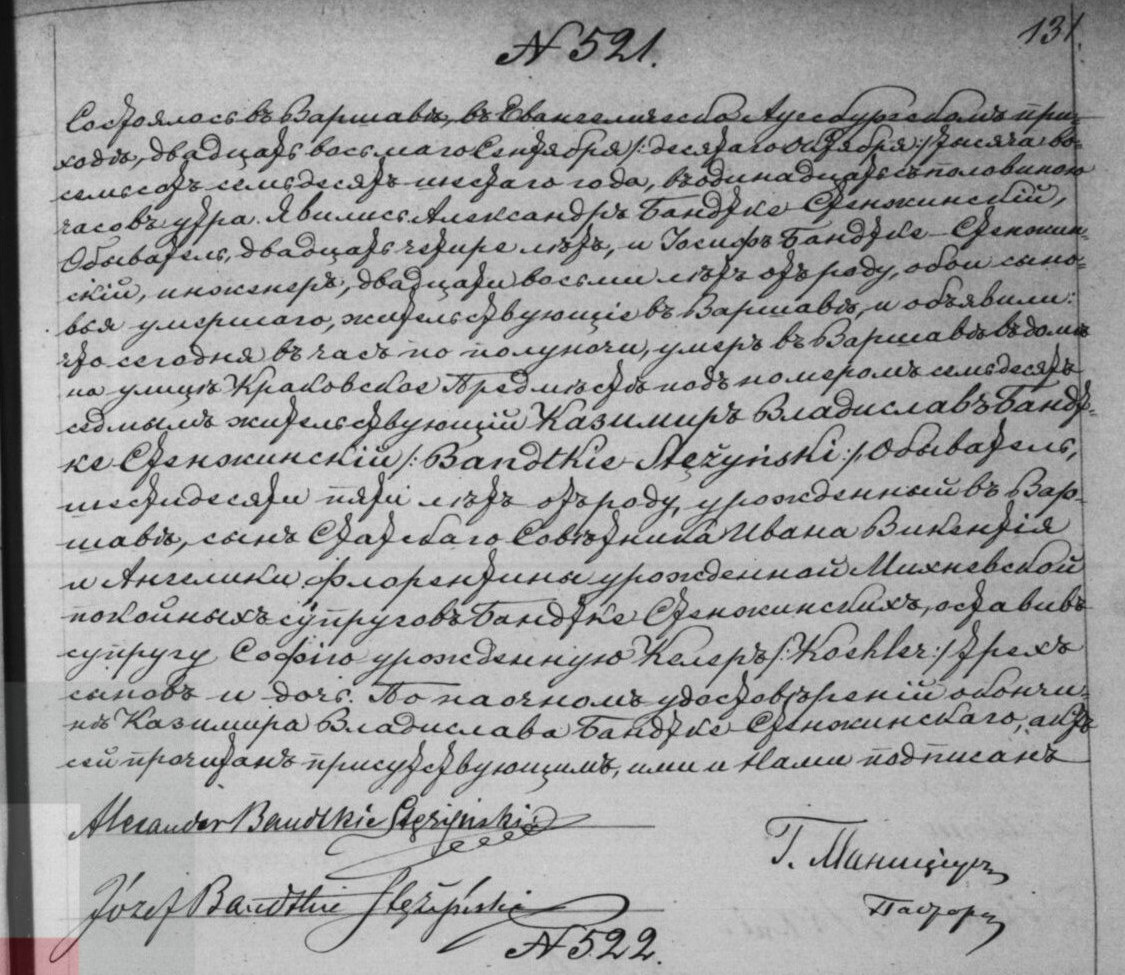 131.
N 521.
Состоялось въ Варшавѣ, въ Евангелическо Аугсбургскомъ при-
ходѣ, двадцать восьмаго Сентября /:десятаго Октября:/ тысяча во-
семьсотъ семьдесятъ шестаго года, въ одинадцать съ половиною
часовъ утра. Явились Александръ Бандтке Стенжинскій,
Обыватель, двадцать четыре лѣтъ, и Іосифъ Бандтке-Стенжин-
скій, инженеръ, двадцати восьми лѣтъ отъ роду, обои сыно-
вья умершаго, жительствующіе въ Варшавѣ, и объявили:
что сегодня въ часъ по полуночи, умеръ въ Варшавѣ въ домѣ
на улицѣ Краковское Предмѣстѣ подъ номеромъ семьдесятъ
седмымъ жительствующій Казимиръ Владиславъ Бандт-
ке Стенжинскій /:Bandtkie-Stężyński:/ Обыватель,
шестидесяти пяти лѣтъ отъ роду, урожденный въ Вар-
шавѣ, сынъ Статскаго Совѣтника Ивана Викентія
и Ангелики Флорентины урожденной Михневской
покойныхъ супруговъ Бандтке Стенжинскихъ, оставивъ
супругу Софію урожденную Келеръ /:Koehler:/ трехъ
сыновъ и дочь. По наочномъ удостовѣреній о кончи-
нѣ Казимира Владислава Бандтке Стенжинскаго, актъ
сей прочитанъ присутствующимъ, ими и Нами подписанъ
Alexander Bandtkie Stężyński
Г.
Józef Bandtkie Stężyński
Пасторъ
N 522.